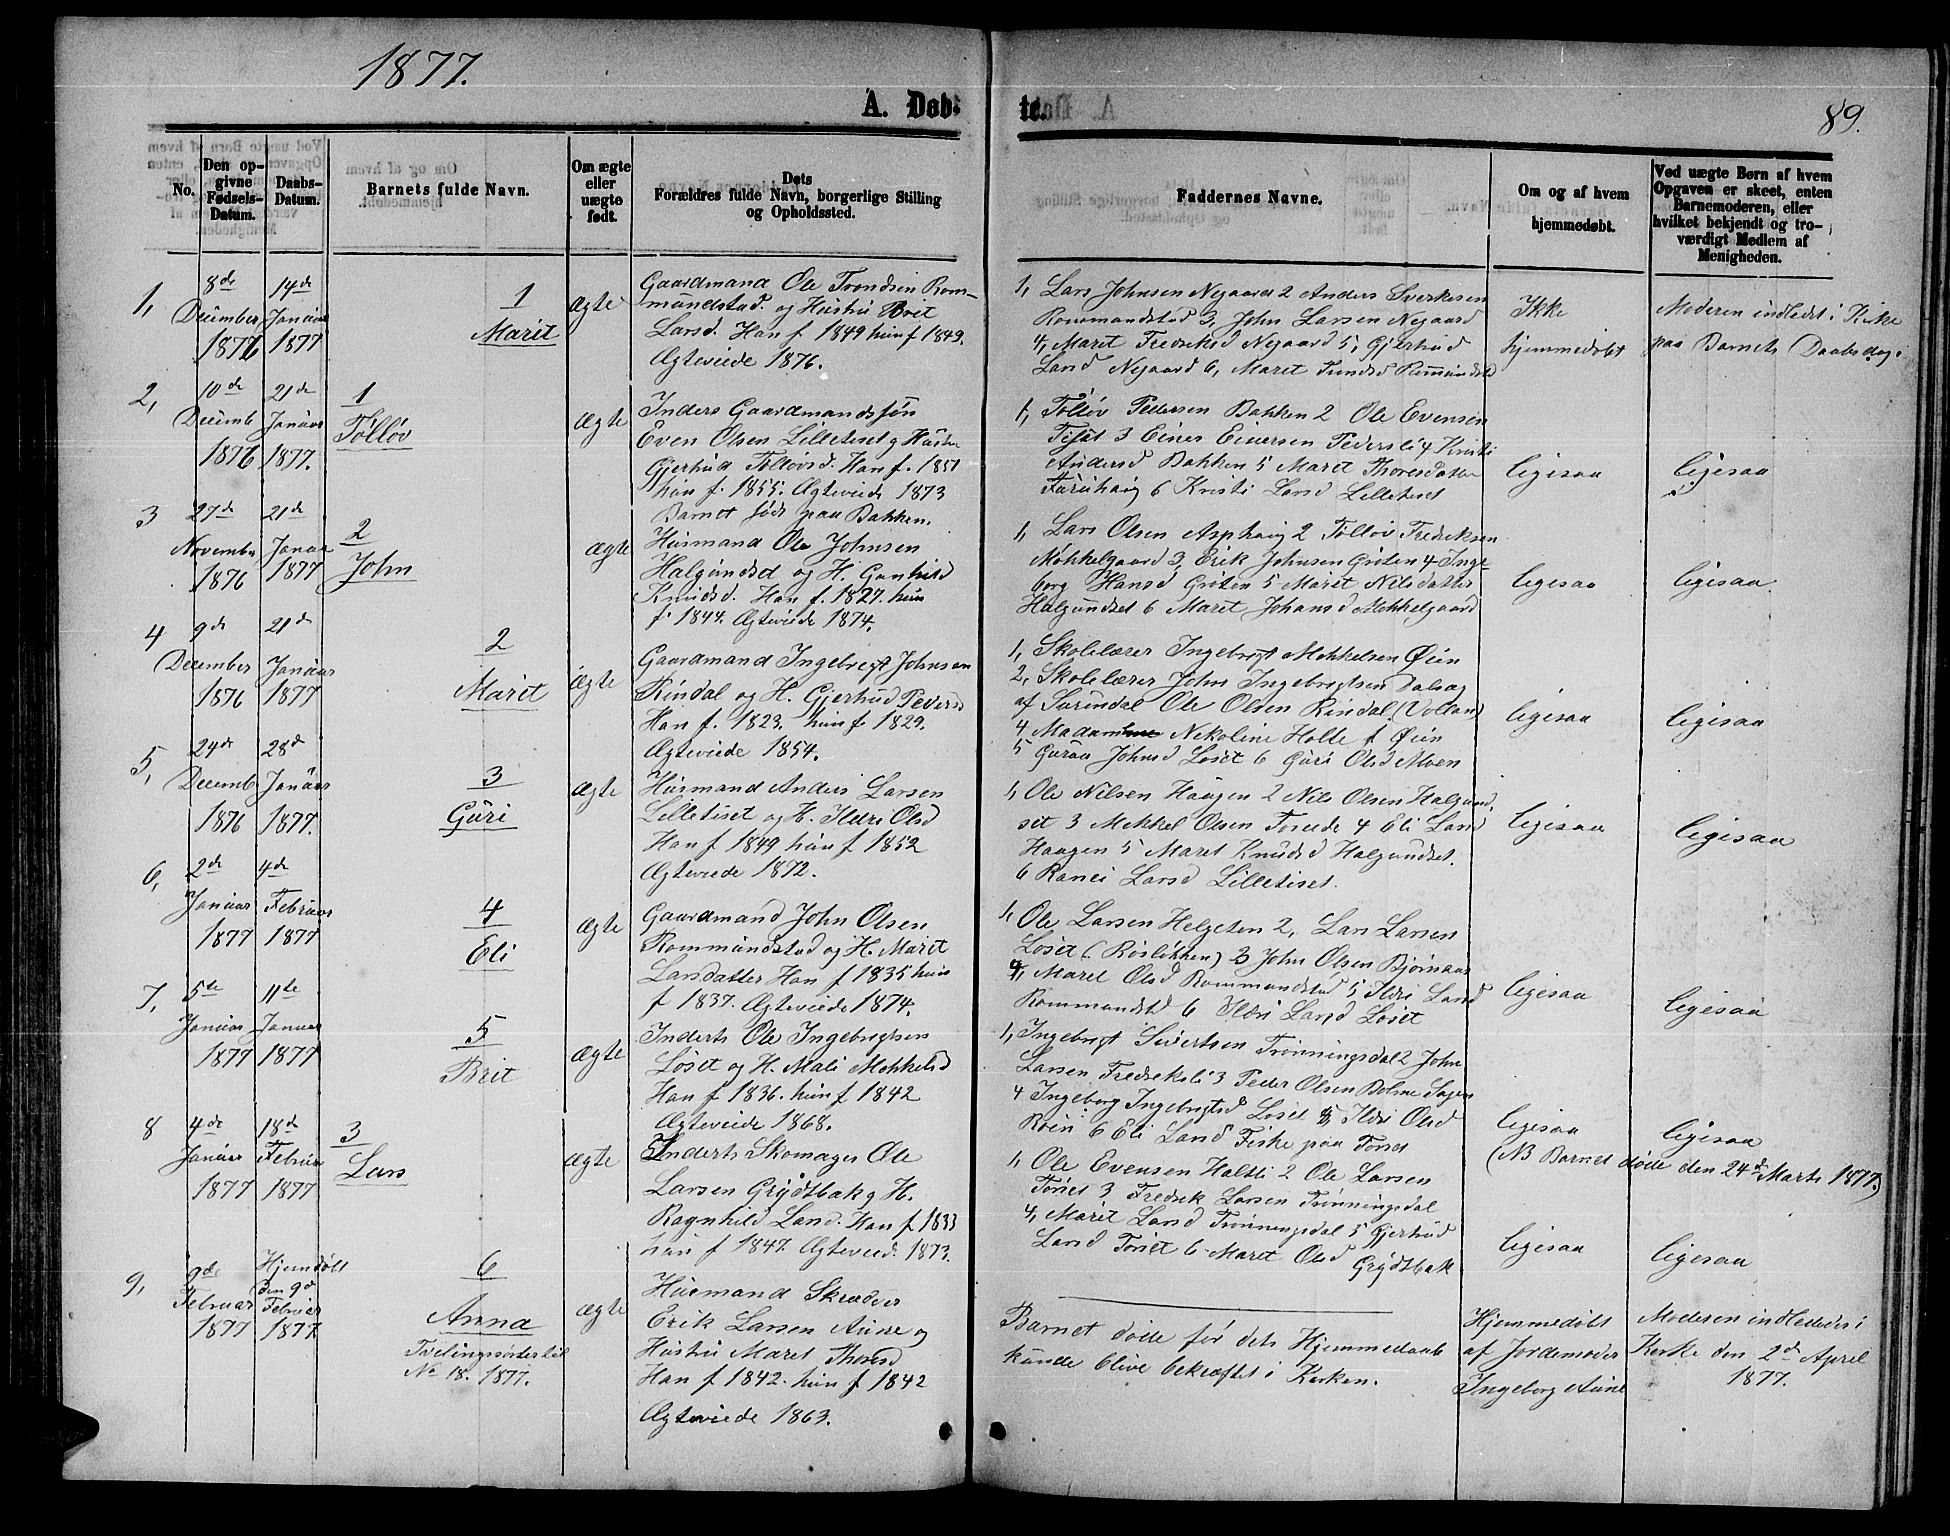 1877.
89.
A. Døb-
te.
No.
Den op-
givne
Fødsels-
Datum.
Daabs-
Datum.
Barnets fulde Navn.
Om ægte
eller
uægte
født.
Dets
Forældres fulde Navn, borgerlige Stilling
og Opholdssted.
Faddernes Navne.
Om og af hvem
hjemmedøbt.
Ved uægte Børn af hvem
Opgaven er skeet, enten
Barnemoderen, eller
hvilket bekjendt og tro-
værdigt Medlem af
Menigheden.
1,
8de
December
1876
14de
Januar
1877
1
Marit
Ægte
Gaardmand Ole Trondsen Rom-
mundstad og Hustru Brit
Larsd. Han f 1849 hun f 1849.
Ægteviede 1876.
1, Lars Johnsen Nygaard 2 Anders Sverkesen
Rommundstad 3, John Larsen Nygaard
4, Maret Fredreksd Nygaard 5, Gjertrud
Larsd Nygaard 6, Maret
Ikke
hjemmedøbt
Moderen indledet i Kirke
paa Barnets Daabsdag.
2,
10de
Decemb
1876
21de
Januar
1877.
1
Tølløv
Ægte
Inders Gaardmandssøn
Even Olsen Lilletiset og Hustru
Gjertrud Tølløvsd. Han f. 1851
hun f. 1855. Ægteviede 1873
Barnet født paa Bakken.
1, Tølløv Pedersen Bakken 2 Ole Evensen
Tiset 3 Einer Einersen Pedersli 4 Kristi
Andersd Bakken 5 Maret Thoresdatter
Furuhaug 6 Kristi Larsd Lilletiset
ligesaa
ligesaa
3
27de
November
1876
21de
Januar
1877
2
John
Ægte
Husmand Ole Johnsen
Halgundset og H. Gunhild
Knudsd. Han f. 1827. hun
f. 1844. Ægteviede 1874.
1, Lars Olsen Asphaug 2 Tølløv Fredriksen
Mokkelgaard 3, Erik Johnsen Grøten 4 Inge-
borg Hansd Grøten 5 Maret Nilsdatter
Halgundset 6 Maret Johansd Mekkelgaard
ligesaa
ligesaa.
4
9de
December
1876
21de
Januar
1877
2
Marit
Ægte
Gaardmand Ingebrigt Johnsen
Rindal og H. Gjertrud Pedersd
Han f. 1823. hun f 1829.
Ægteviede 1854.
1, Skolelærer Ingebrigt Mekkelsen Øien
2, Skolelærer John Ingebrigtsen Dalsæg
af Surendal Ole Olsen Rindal (Volland)
4 Madam Nekoline Holte f Øien
5 Guraa Johnsd Løset 6 Guri Olsd Moen
ligesaa
ligesaa
5,
24de
Decemb
1876
28de
Januar
1877.
3
Guri
Ægte
Husmand Anders Larsen
Lilletiset og H. Ildri Olsd
Han f 1849 hun f 1852
Ægteviede 1872.
1, Ole Nilsen Haugen 2 Nils Olsen Halgund-
set 3 Mekkel Olsen Torvede 4 Eli Larsd
Haugen 5 Maret Knudsd Halgundset.
6 Ranei Larsd Lilletiset.
ligesaa
ligesaa
6,
2de
Januar
1877
4de
Februar
1877
4
Eli
Ægte
Gaardmand John Olsen
Rommundstad og H. Maret
Larsdatter Han f 1835 hun
f 1837. Ægteviede 1874.
1, Ole Larsen Helgeten 2, Lars Larsen
Løset (Røsløkken) 3 John Olsen Bjørnaas
4, Maret Olsd Rommundstad 5 Ildri Larsd
Rommundstd 6 Ildri Larsd Løset
ligesaa
ligesaa
7,
5te
Januar
1877
11te
Januar
1877
5
Brit
Ægte
Inderts Ole Ingebrigtsen
Løset og H. Mali Mekkelsd
Han f 1836. hun f 1842
Ægteviede 1868.
1, Ingebrigt Sivertsen Trønningsdal 2 John
Larsen Fredreksli 3 Peder Olsen Bolme Sagen
4 Ingeborg Ingebrigtsd Løset 5 Ildri Olsd
Røen 6 Eli Larsd Fiske paa Torset
ligesaa
(NB Barnet døde den 24de Marts 1877.)
ligesaa
8
4de
Januar
1877
18de
Februar
1877
3
Lars
Ægte
Inderts Skomager Ole
Larsen Grydtbak og H.
Ragnhild Larsd. Han f 1833
hun f 1847. Ægtevied. 1873.
1, Ole Evensen Haltli 2 Ole Larsen
Toriet 3, Fredrek Larsen Trønningsdal
4, Marit Larsd Trønningsdal 5 Gjertrud
Larsd Toriet 6 Maret Olsd Grydtbak
ligesaa
ligesaa
9,
9de
Februar
1877
Hjemdøbt
den 9de
Februar
1877
6
Anna
Tvilingsøster til
No 18. 1877.
Ægte
Husmand Skrædder
Erik Larsen Aune og
Hustru Maret Thoresd
Han f 1842. hun f 1842
Ægteviede 1863.
Barnet døde før dets Hjemmedaab
kunde blive bekræftet i Kerken.
Hjemmedøbt
af Jordemoder
Ingeborg Aune
Moderen indlededes i
Kerke den 2de April
1877.